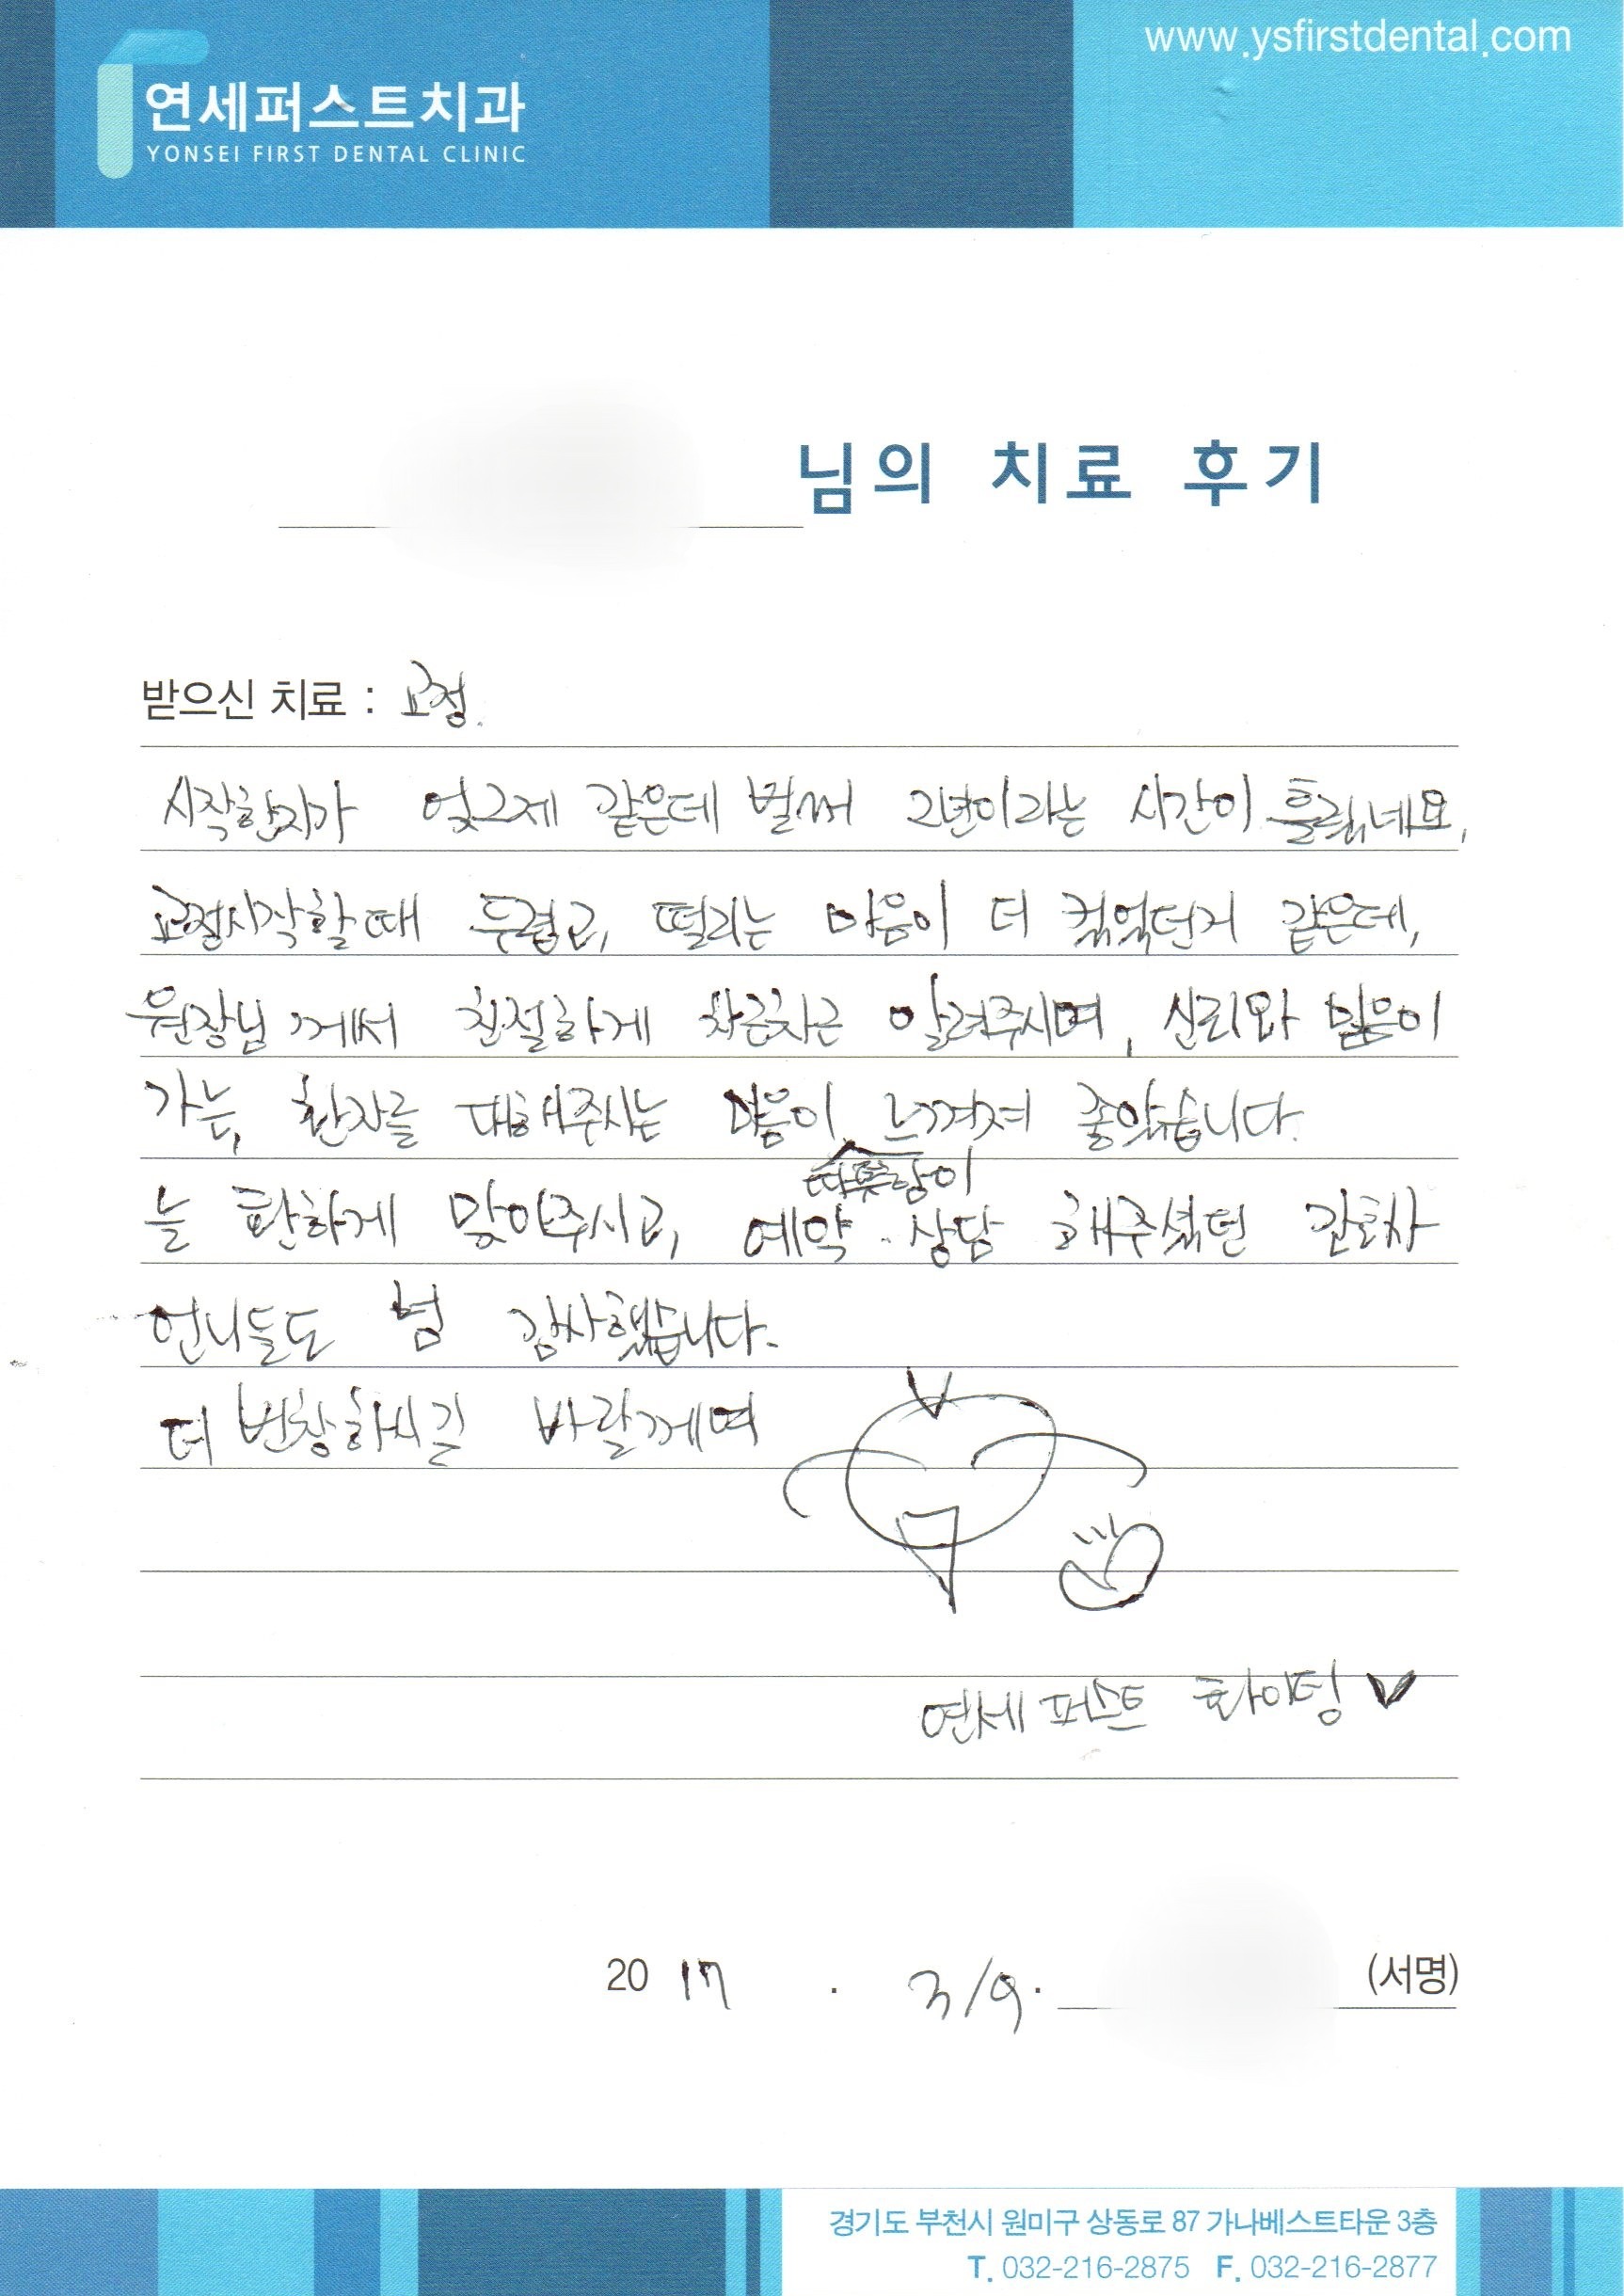 www.ysfirstdental.com
연세퍼스트치과
YONSEI FIRST DENTAL CLINIC
님의 치료 후기
받으신 치료 : 교정.
시작한지가 엊그제 같은데 벌써 2년이라는 시간이 흘렀네요,
교정시작할때 두렵고, 떨리는 마음이 더 컸었던거 같은데,
원장님께서 친절하게 차근차근 알려주시며, 신뢰와 믿음이
가는, 환자를 대해주시는 마음이 느껴져 좋았습니다.
따뜻함이
늘 편하게 맞아주시고, 예약·상담 해주셨던 간호사
언니들도 넘 감사했습니다.
더 번창하시길 바랄께여
연세 퍼스트 화이팅 ♥
20 17 . 3/9. (서명)
경기도 부천시 원미구 상동로 87 가나베스트타운 3층
T. 032-216-2875 F. 032-216-2877